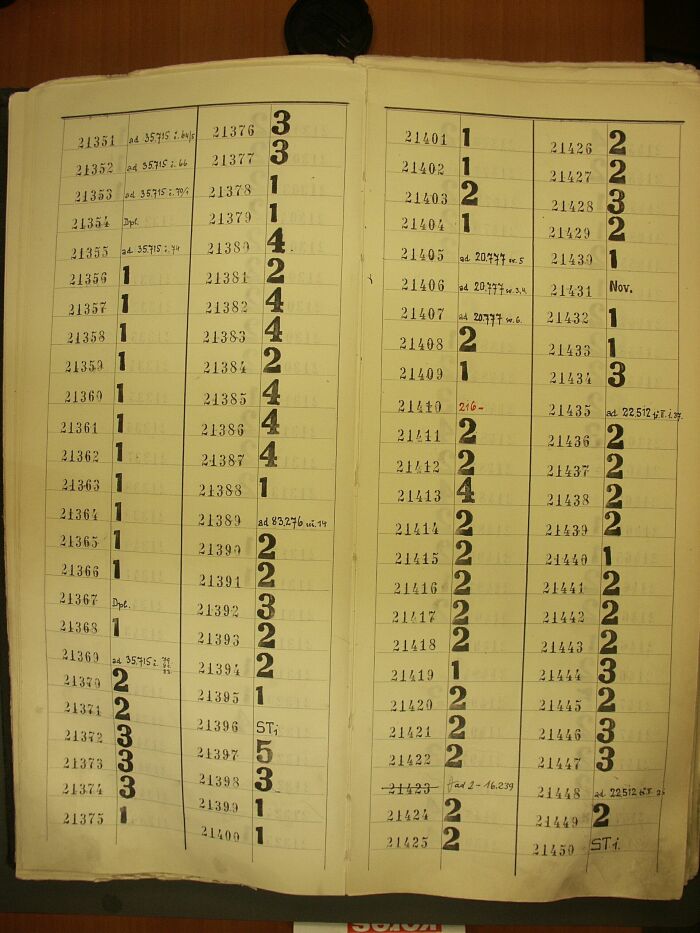 21351 ad 35.715 i. 64/5
21352 ad 35.715 i. 66
21353 ad 35.715 i. 79/1
21354 Dpl.
21355 ad 35.715 i. 74
21356 1
21357 1
21358 1
21359 1
21360 1
21361 1
21362 1
21363 1
21364 1
21365 1
21366 1
21367 Dpl.
21368 1
21369 ad 35.715 i. 79
21370 2
21371 2
21372 3
21373 3
21374 3
21375 1
21376 3
21377 3
21378 1
21379 1
21380 4
21381 2
21382 4
21383 4
21384 2
21385 4
21386 4
21387 4
21388 1
21389 ad 83.276 w. 14
21390 2
21391 2
21392 3
21393 2
21394 2
21395 1
21396 STi
21397 5
21398 3
21399 1
21400 1
21401 1
21402 1
21403 2
21404 1
21405 ad 20.777 w. 5
21406 ad 20.777 w. 3,4.
21407 ad 20.777 w. 6.
21408 2
21409 1
21410 216-
21411 2
21412 2
21413 4
21414 2
21415 2
21416 2
21417 2
21418 2
21419 1
21420 2
21421 2
21422 2
21423 ad 2-16.239
21424 2
21425 2
21426 2
21427 2
21428 3
21429 2
21430 1
21431 Nov.
21432 1
21433 1
21434 3
21435 ad 22.512 i. 37.
21436 2
21437 2
21438 2
21439 2
21440 1
21441 2
21442 2
21443 2
21444 3
21445 2
21446 3
21447 3
21448 ad 22.512
21449 2
21450 STi.